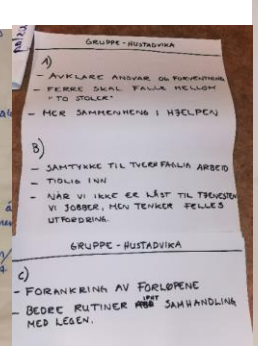 GRUPPE - HUSTADVIKA
A)
- AVKLARE ANSVAR OG FORVENTNING
- FERRE SKAL FALLE MELLOM
"TO STOLER"
- MER SAMMENHENG I HJELPEN
B)
- SAMTYKKE TIL TVERRFAGLIG ARBEID
- TIDLIG INN
- NÅR VI IKKE ER LÅST TIL TJENESTEN
VI JOBBER, MEN TENKER FELLES
UTFORDRING.
GRUPPE - HUSTADVIKA
C)
- FORANKRING AV FORLØPENE
- BEDRE RUTINER IFHT SAMHANDLING
MED LEGEN.